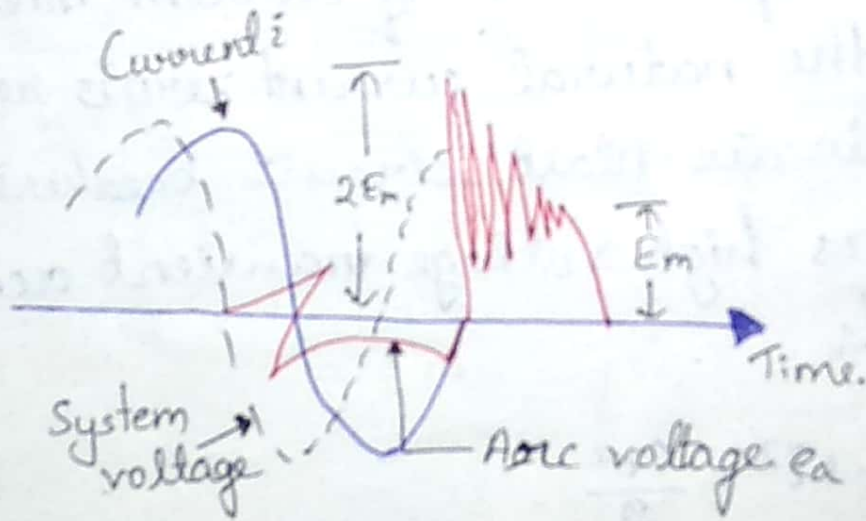 Current i
2Em
Em
Time.
System
voltage
Arc voltage ea